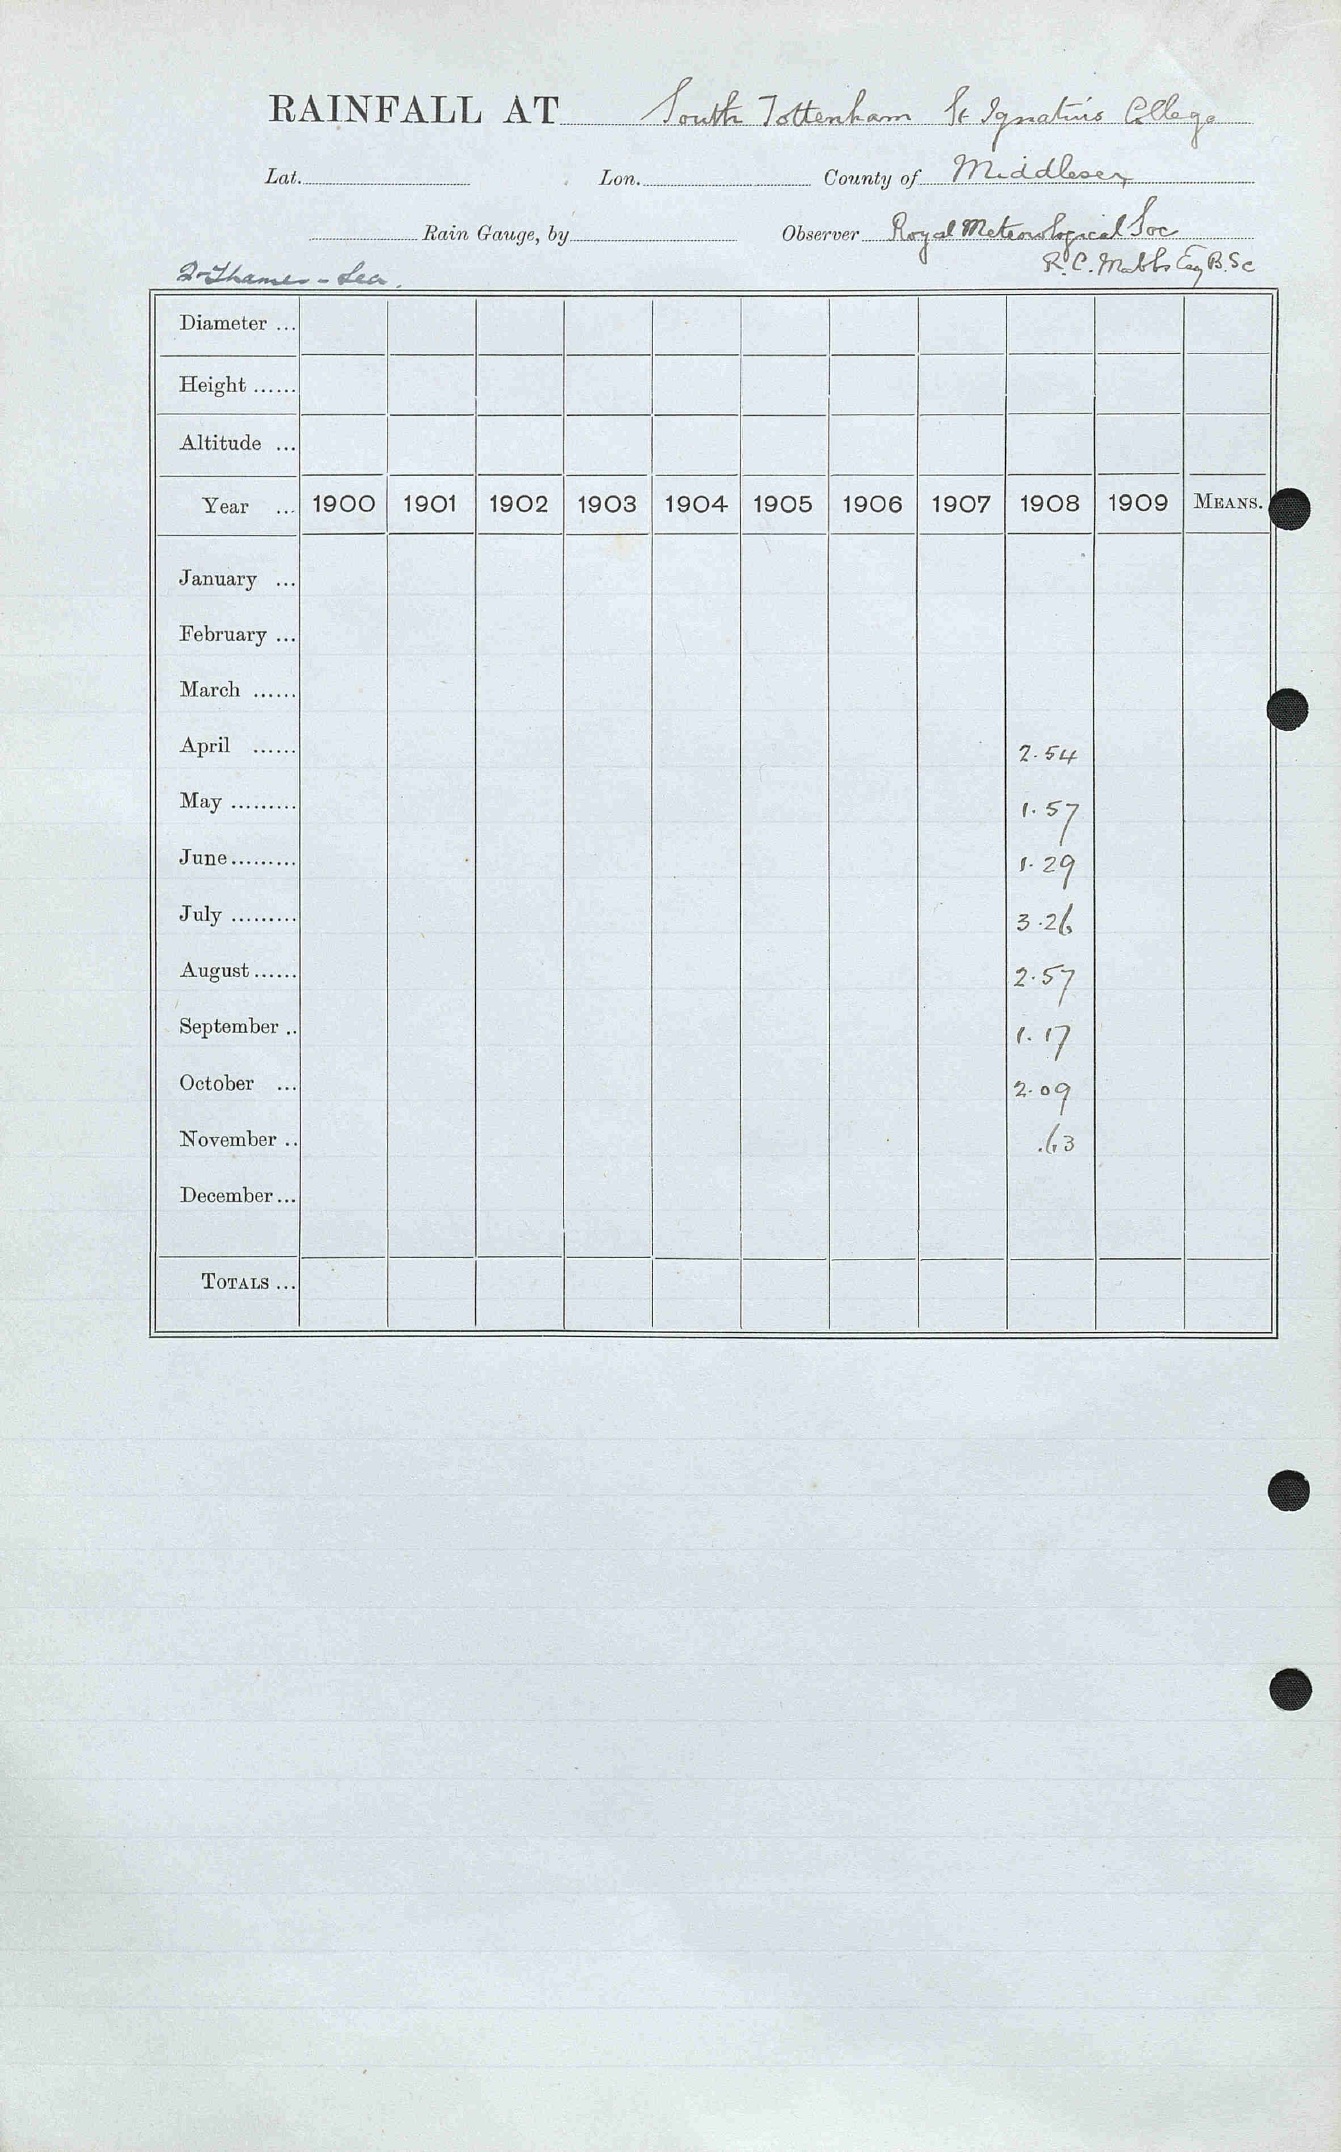 RAINFALL AT South Tottenham St Ignatius College
Lat. Lon. County of Middlesex
Rain Gauge, by Observer Royal Meteorological Soc
R.C. Mabbs Esq B.Sc
2-Thames - Lea.
Diameter ...
Height ......
Altitude ...
Year ... 1900 1901 1902 1903 1904 1905 1906 1907 1908 1909 MEANS.
January ...
February ...
March ......
April ...... 2.54
May ......... 1.57
June ......... 1.29
July ......... 3.26
August ...... 2.57
September .. 1.17
October ... 2.09
November .. .63
December ...
TOTALS ...